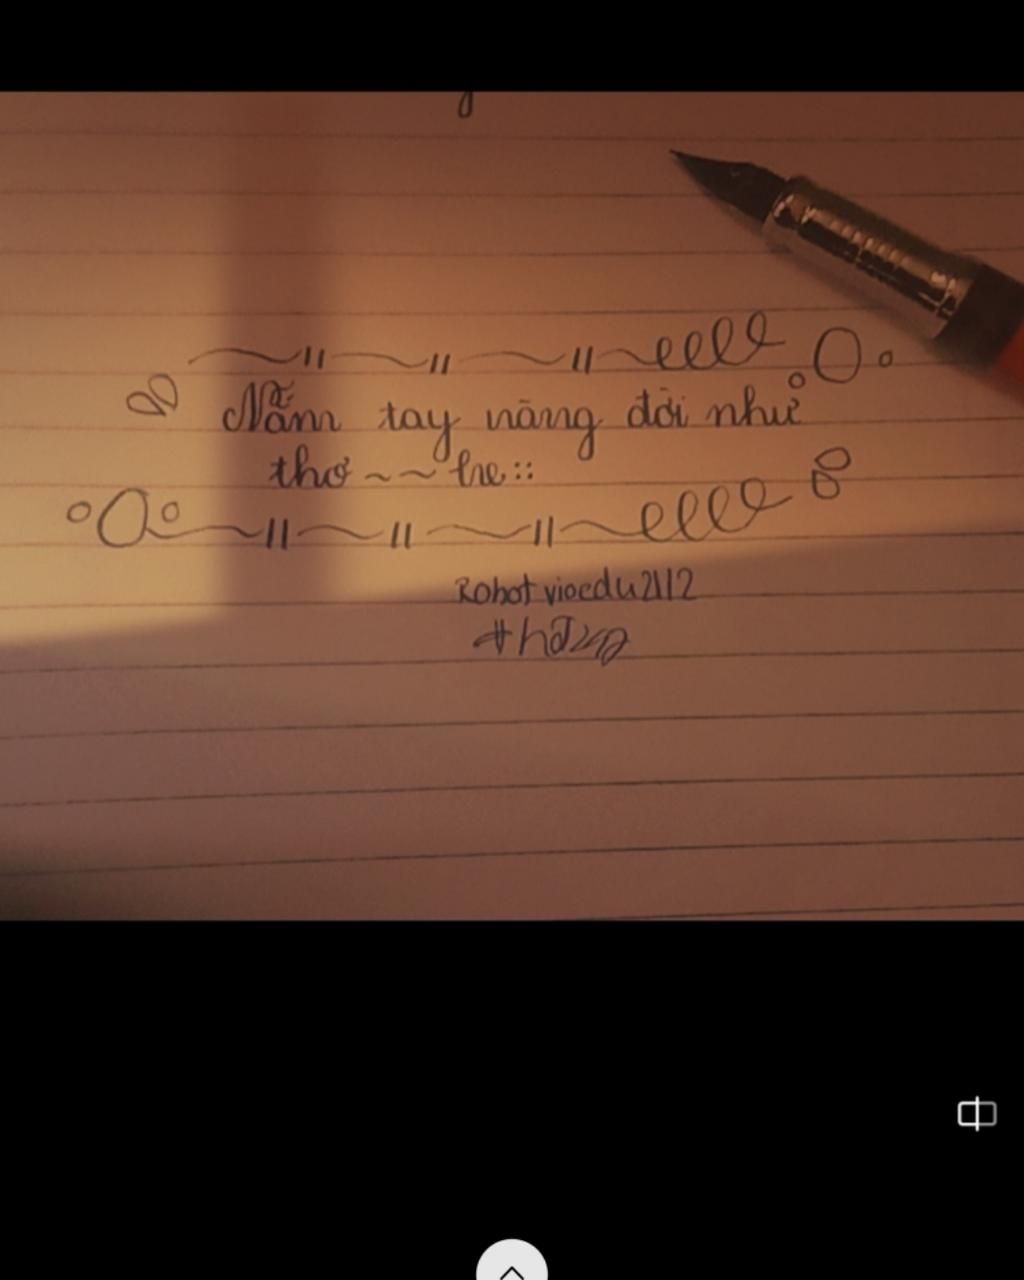 Nắm tay nàng đời như
thơ ~ ~ he::
Robot vioedu2112